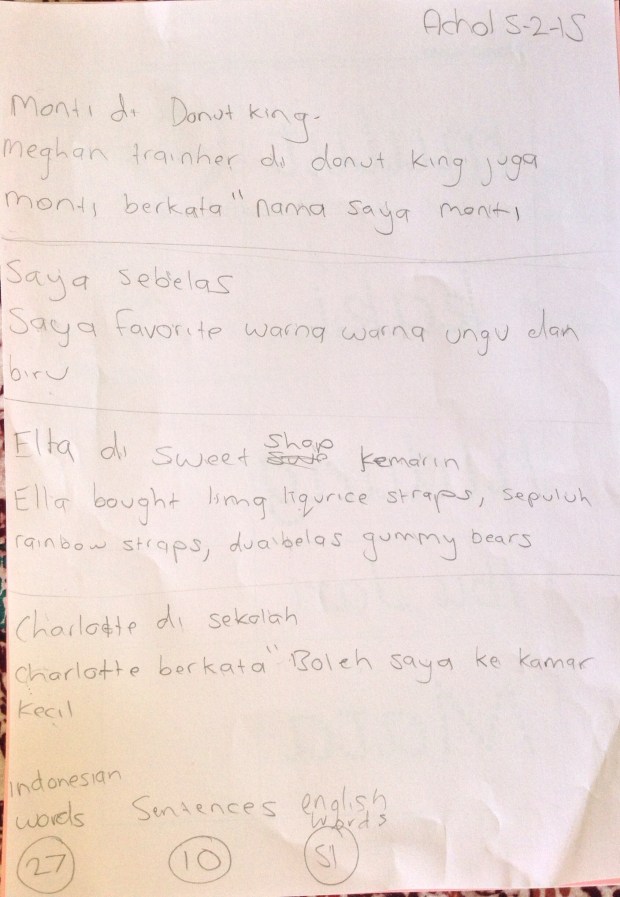 Achol 5-2-15
Monti di Donut king.
Meghan trainher di donut king juga
Monti berkata "nama saya monti
Saya sebelas
Saya favorite warna warna ungu dan
biru
Ella di sweet shop kemarin
Ella bought lima liqurice straps, sepuluh
rainbow straps, duaibelas gummy bears
Charlotte di sekolah
Charlotte berkata "Boleh saya ke kamar
kecil
indonesian
words Sentences english
words
27 10 51